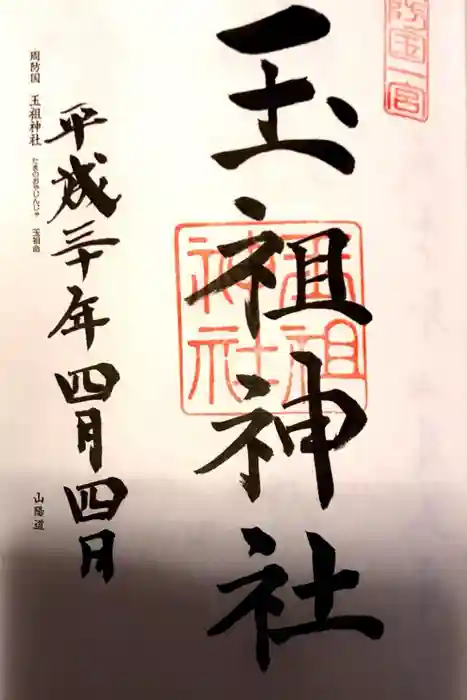 防国一宮
玉祖神社
玉祖
神社
平成三十年四月四月
周防国 玉祖神社 たまのおやじんじゃ 玉祖命
山陽道